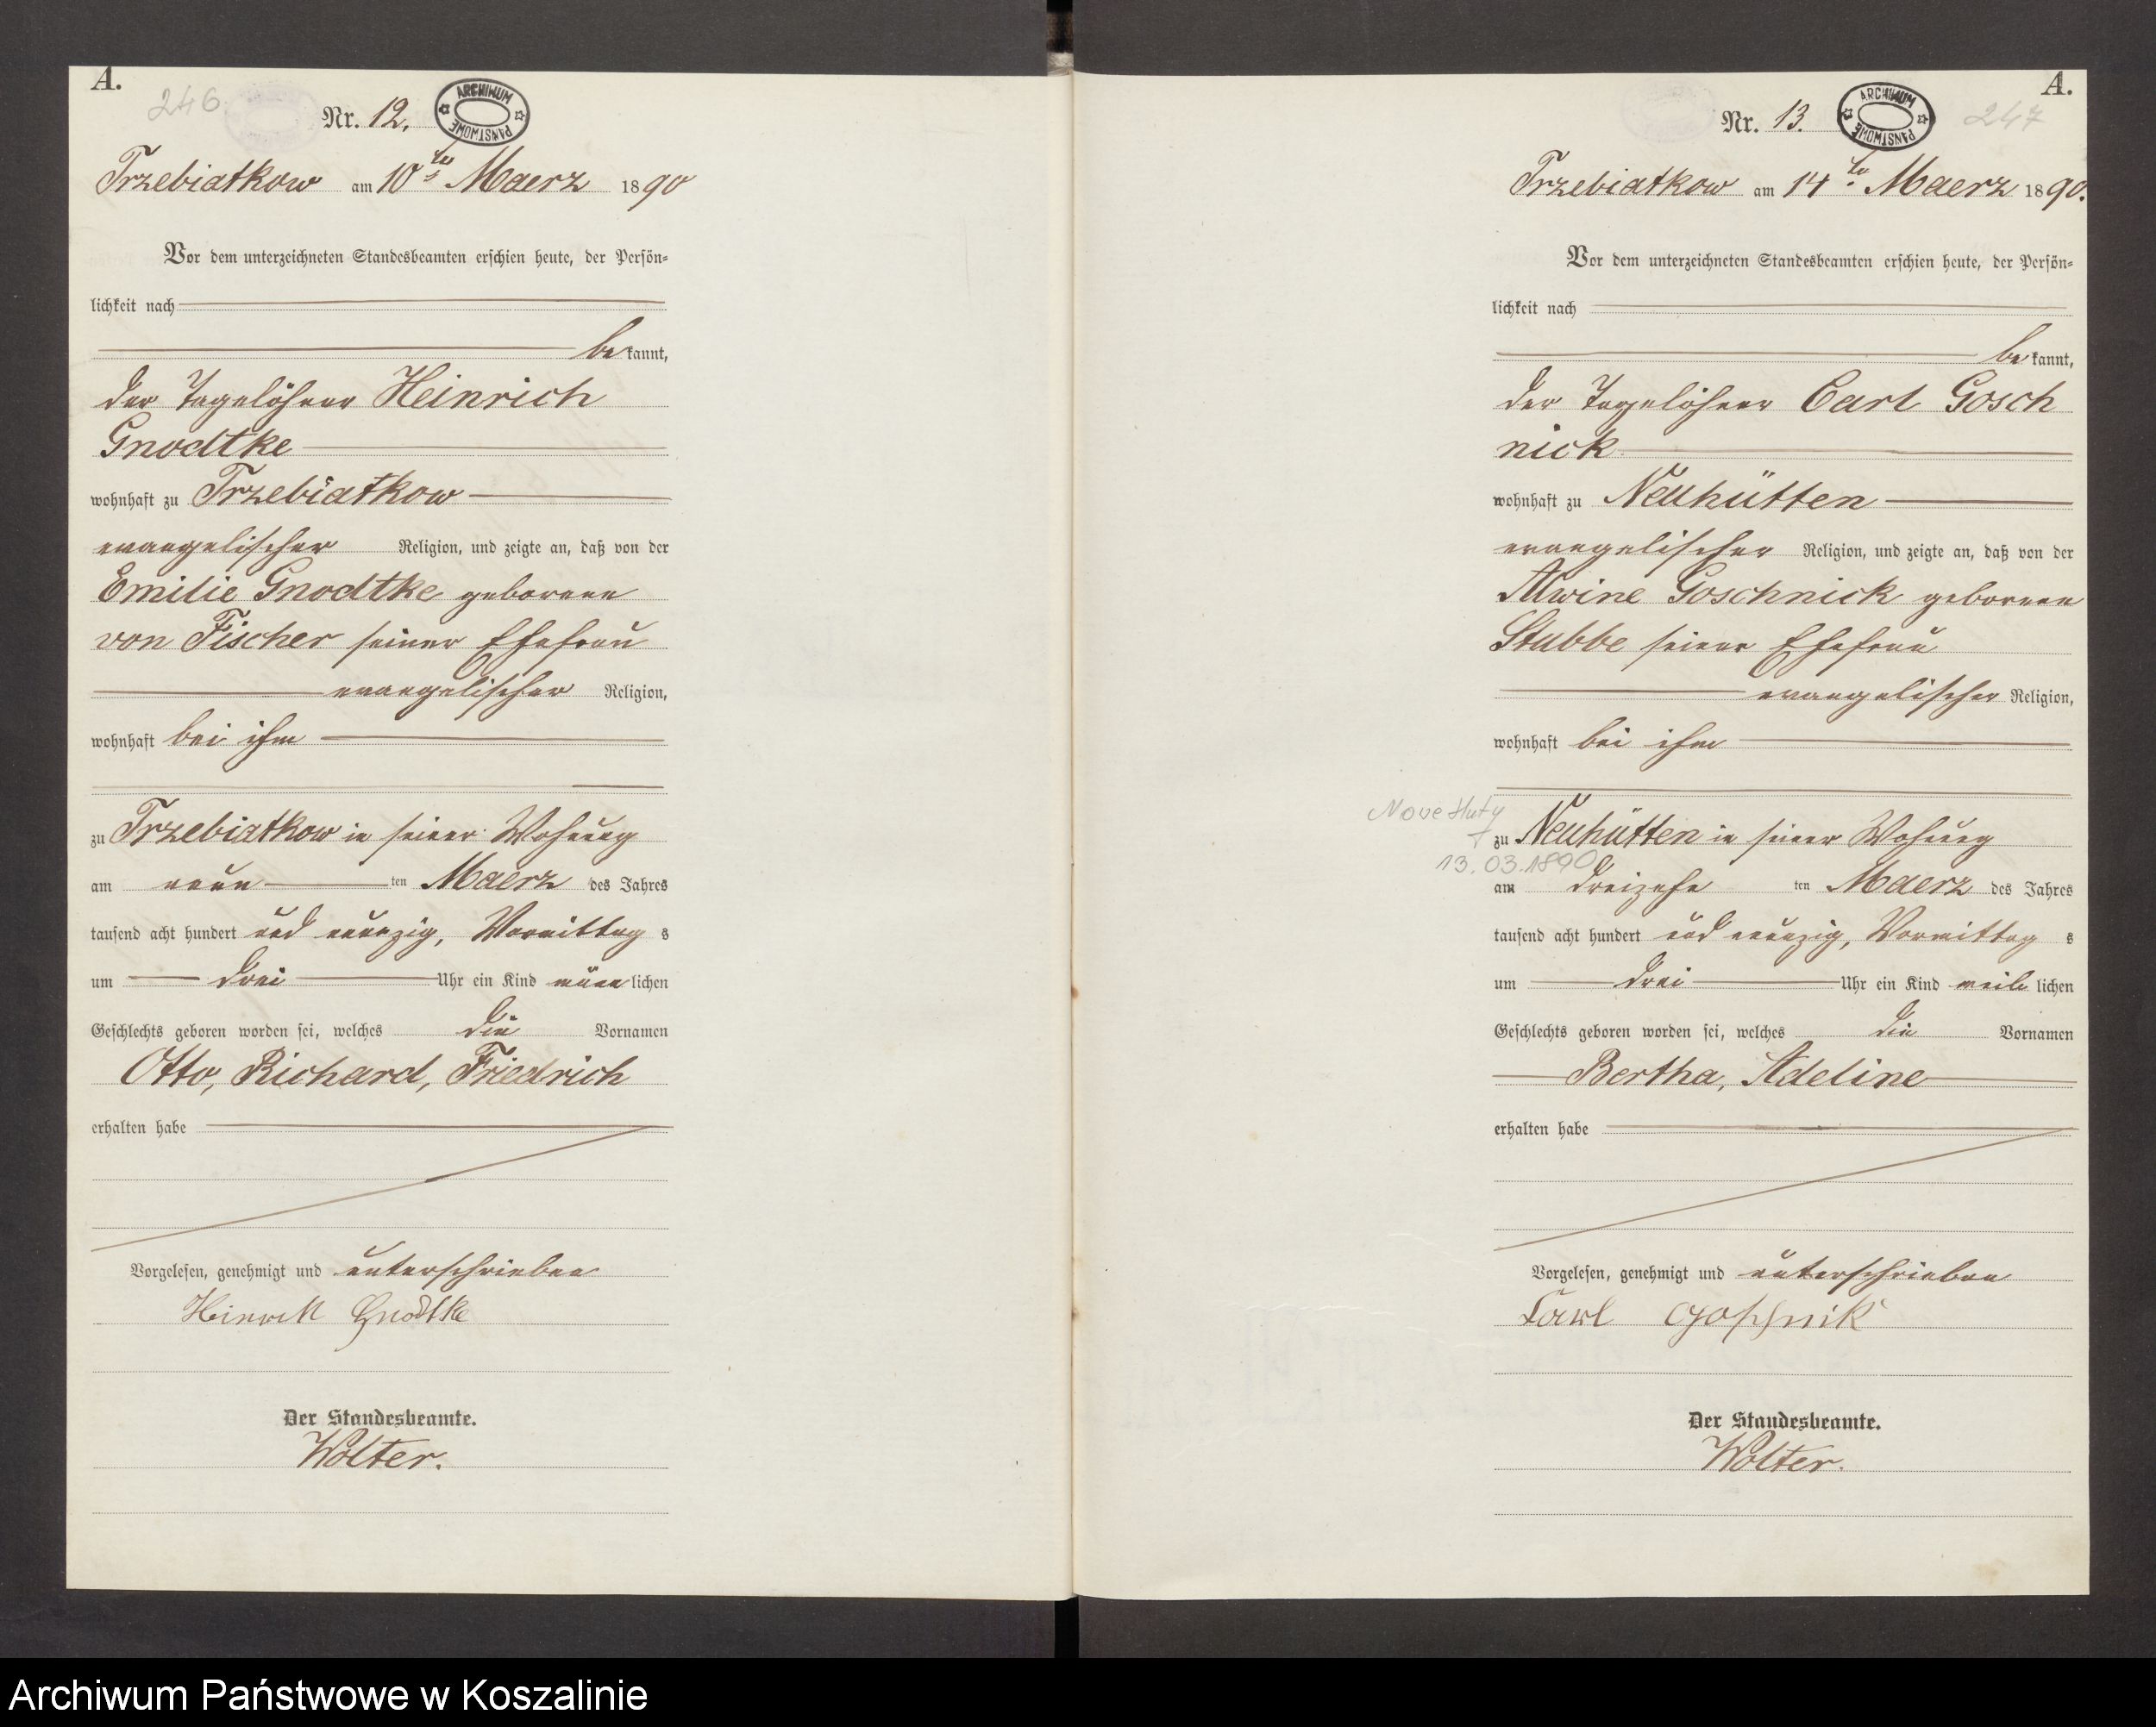 A.
246
Nr. 12.
ARCHIWUM PAŃSTWOWE
Trzebiatkow am 10ten Maerz 1890
Vor dem unterzeichneten Standesbeamten erschien heute, der Persön-
lichkeit nach
bekannt,
der Tagelöhner Heinrich
Gnodtke
wohnhaft zu Trzebiatkow
evangelischer Religion, und zeigte an, daß von der
Emilie Gnodtke geborenen
von Fischer seiner Ehefrau
evangelischer Religion,
wohnhaft bei ihm
zu Trzebiatkow in seiner Wohnung
am neun ten Maerz des Jahres
tausend acht hundert und neunzig, Vormittags
um drei Uhr ein Kind männlichen
Geschlechts geboren worden sei, welches die Vornamen
Otto, Richard, Friedrich
erhalten habe
Vorgelesen, genehmigt und unterschrieben
Heinrich Gnodtke
Der Standesbeamte.
Wolter.
A.
247
Nr. 13.
ARCHIWUM PAŃSTWOWE
Trzebiatkow am 14ten Maerz 1890.
Vor dem unterzeichneten Standesbeamten erschien heute, der Persön-
lichkeit nach
bekannt,
der Tagelöhner Carl Gosch
nick
wohnhaft zu Neuhütten
evangelischer Religion, und zeigte an, daß von der
Alwine Goschnick geborenen
Stubbe seiner Ehefrau
evangelischer Religion,
wohnhaft bei ihm
Nove Huty
zu Neuhütten in seiner Wohnung
13.03.1890
am dreizehn ten Maerz des Jahres
tausend acht hundert und neunzig, Vormittags
um drei Uhr ein Kind weiblichen
Geschlechts geboren worden sei, welches die Vornamen
Bertha, Adeline
erhalten habe
Vorgelesen, genehmigt und unterschrieben
Carl Goschnik
Der Standesbeamte.
Wolter.
Archiwum Państwowe w Koszalinie